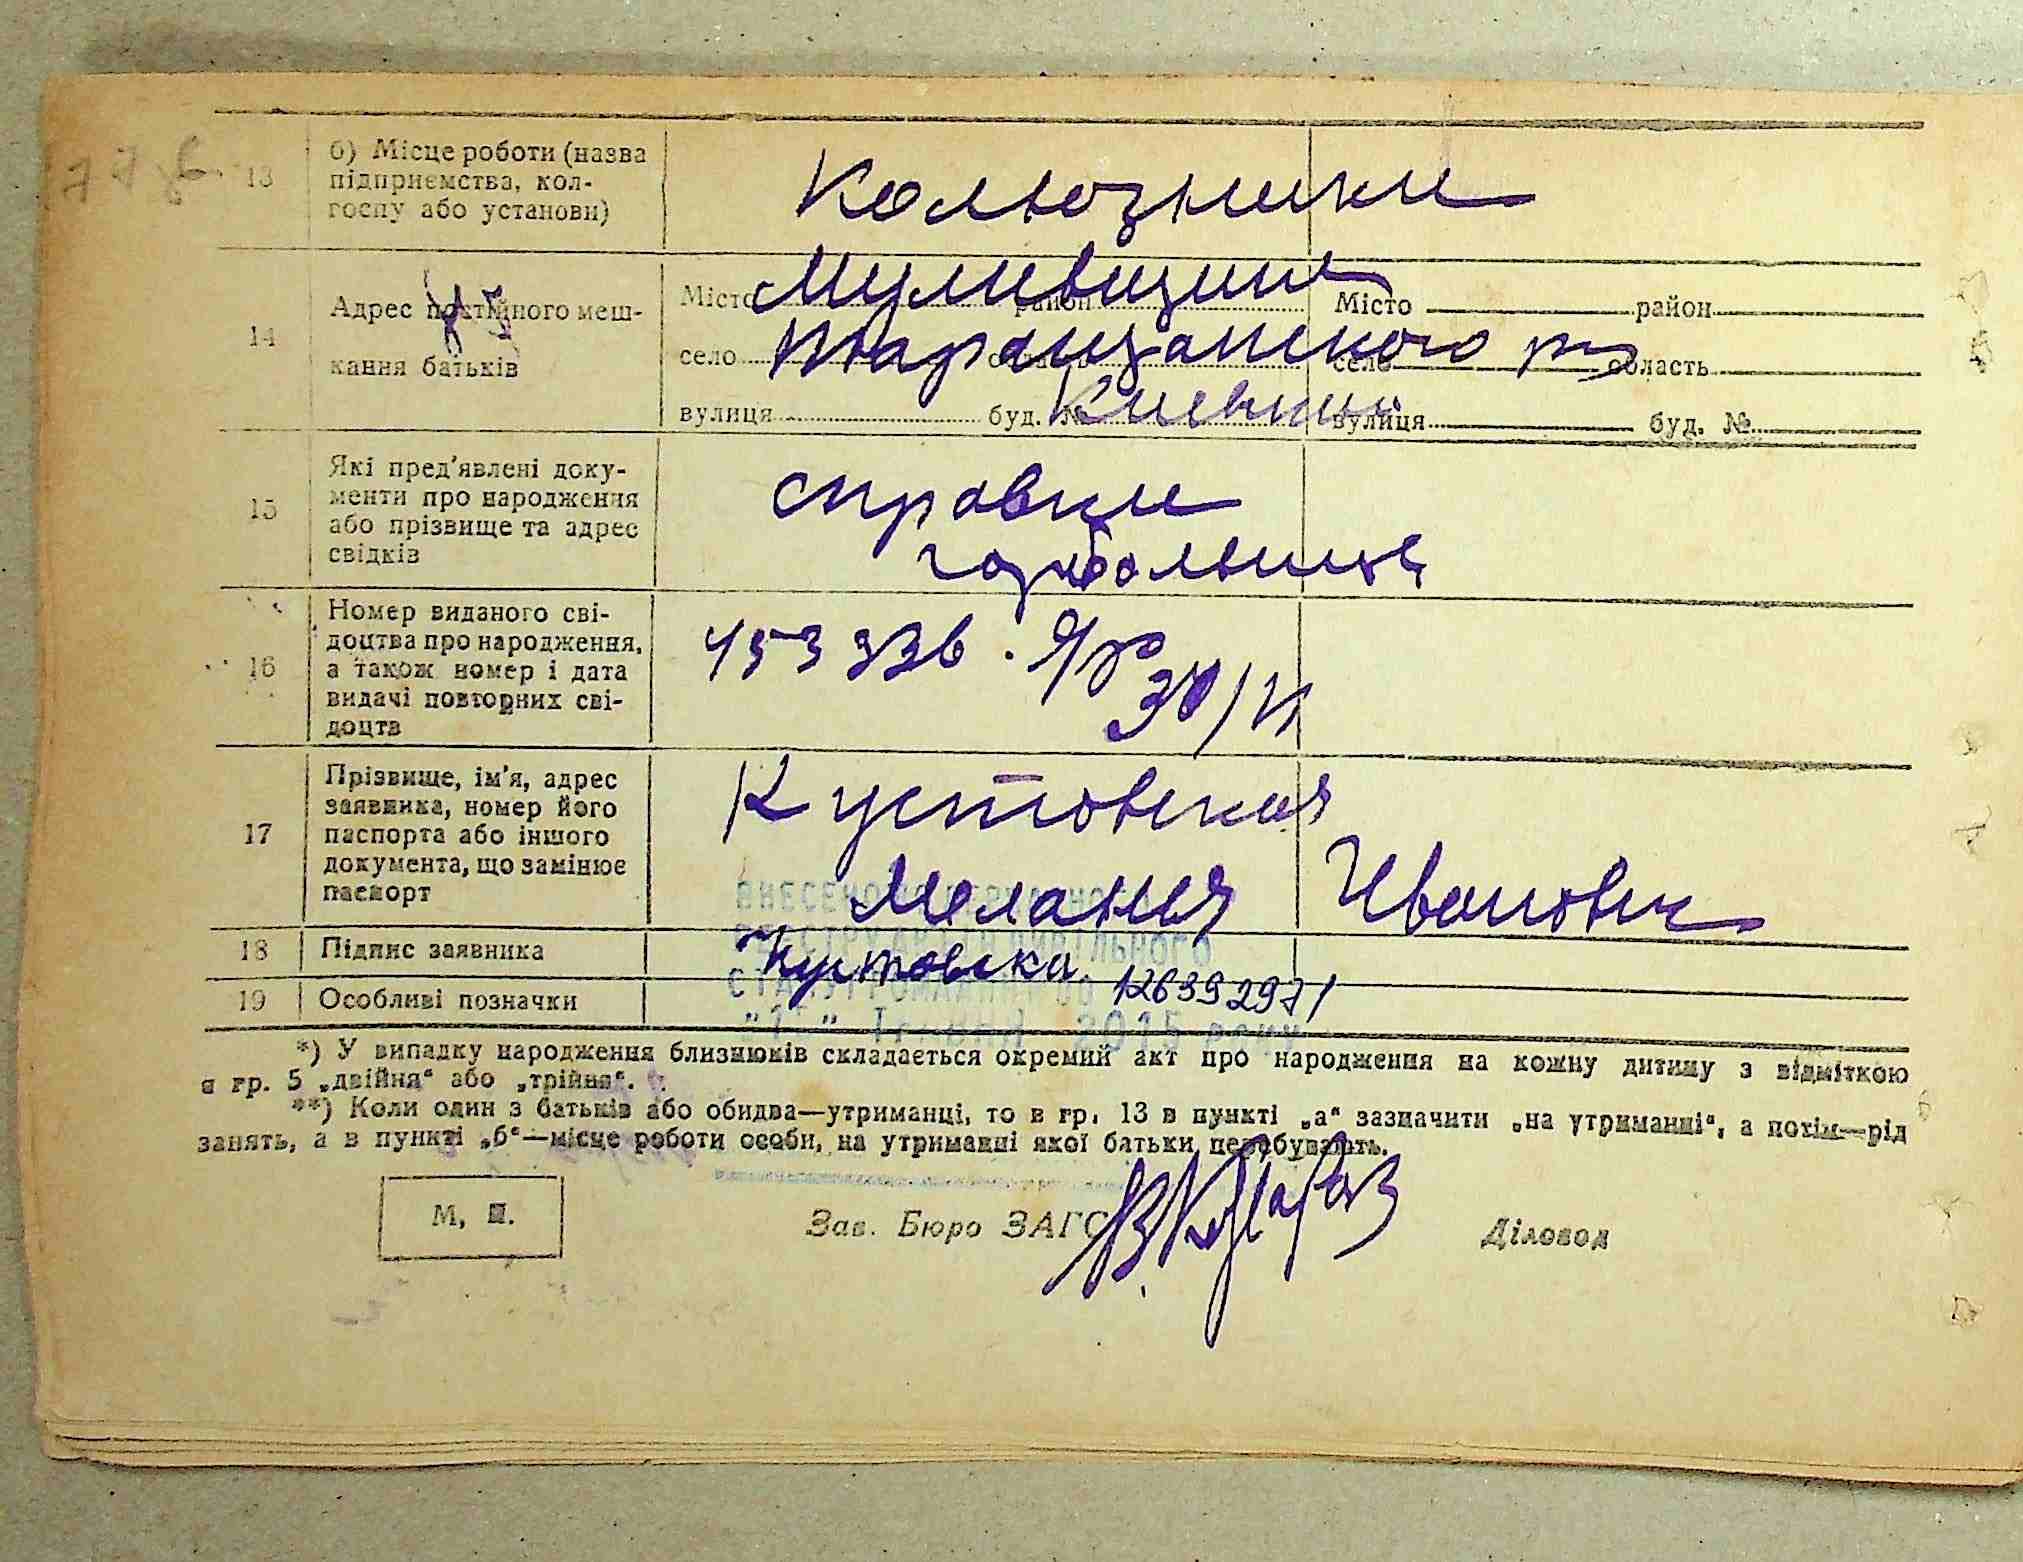 13 б) Місце роботи (назва
підприємства, кол-
госпу або установи)
14 Адрес постійного меш-
кання батьків
Місто район Місто район
село Таращанского р область село область
вулиця буд. № вулиця буд. №
15 Які пред'явлені доку-
менти про народження
або прізвище та адрес
свідків
справки
16 Номер виданого сві-
доцтва про народження,
а також номер і дата
видачі повторних сві-
доцтв
17 Прізвище, ім'я, адрес
заявника, номер його
паспорта або іншого
документа, що замінює
паспорт
Кустовская
Мелания Ивановн
18 Підпис заявника Кустовска
19 Особливі позначки 126392971
ВНЕСЕНО ДО ДЕРЖАВНОГО
РЕЄСТРУ АКТІВ ЦИВІЛЬНОГО
СТАНУ ГРОМАДЯН
Травня 2015 року
*) У випадку народження близнюків складається окремий акт про народження на кожну дитину з відміткою
в гр. 5 „двійня“ або „трійня“.
**) Коли один з батьків або обидва—утриманці, то в гр. 13 в пункті „а“ зазначити „на утриманні“, а потім—рід
занять, а в пункті „б“—місце роботи особи, на утриманні якої батьки перебувають.
М. П.
Зав. Бюро ЗАГС Діловод